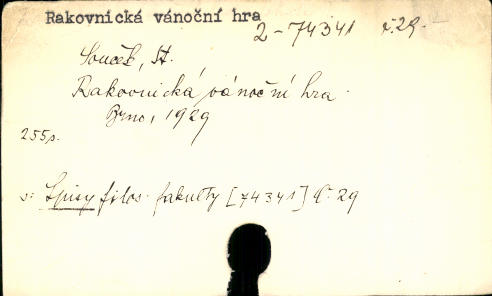 Rakovnická vánoční hra
2-74341 č.29.
Souček, St.
Rakovnická vánoční hra.
Brno, 1929
255s.
s: Spisy filos. fakulty [74341] č. 29